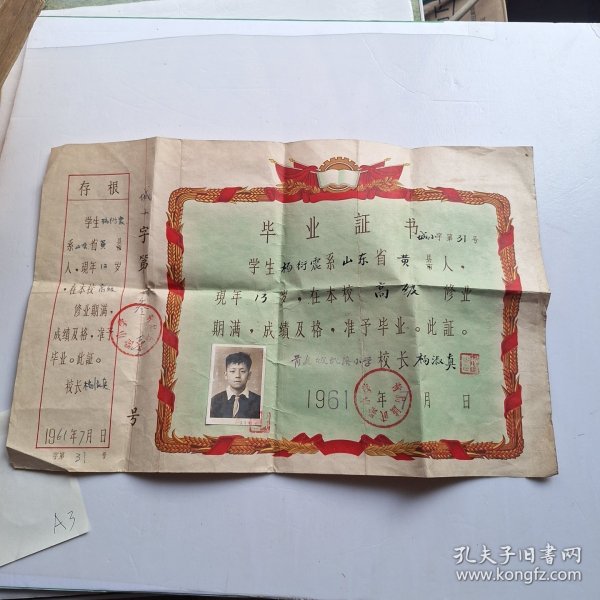 存根
学生杨衍震
系山东省黄县
人，现年13岁
，在本校高级
修业期满，
成绩及格，准予
毕业。此证。
校长杨淑真
1961年7月 日
字第31号
字第
号
毕业証书
城小字第31号
学生杨衍震系山东省黄县人，
现年13岁，在本校高级修业
期满，成绩及格，准予毕业。此证。
小学校长杨淑真
1961年 月 日
A3
孔夫子旧书网
www.kongfz.com